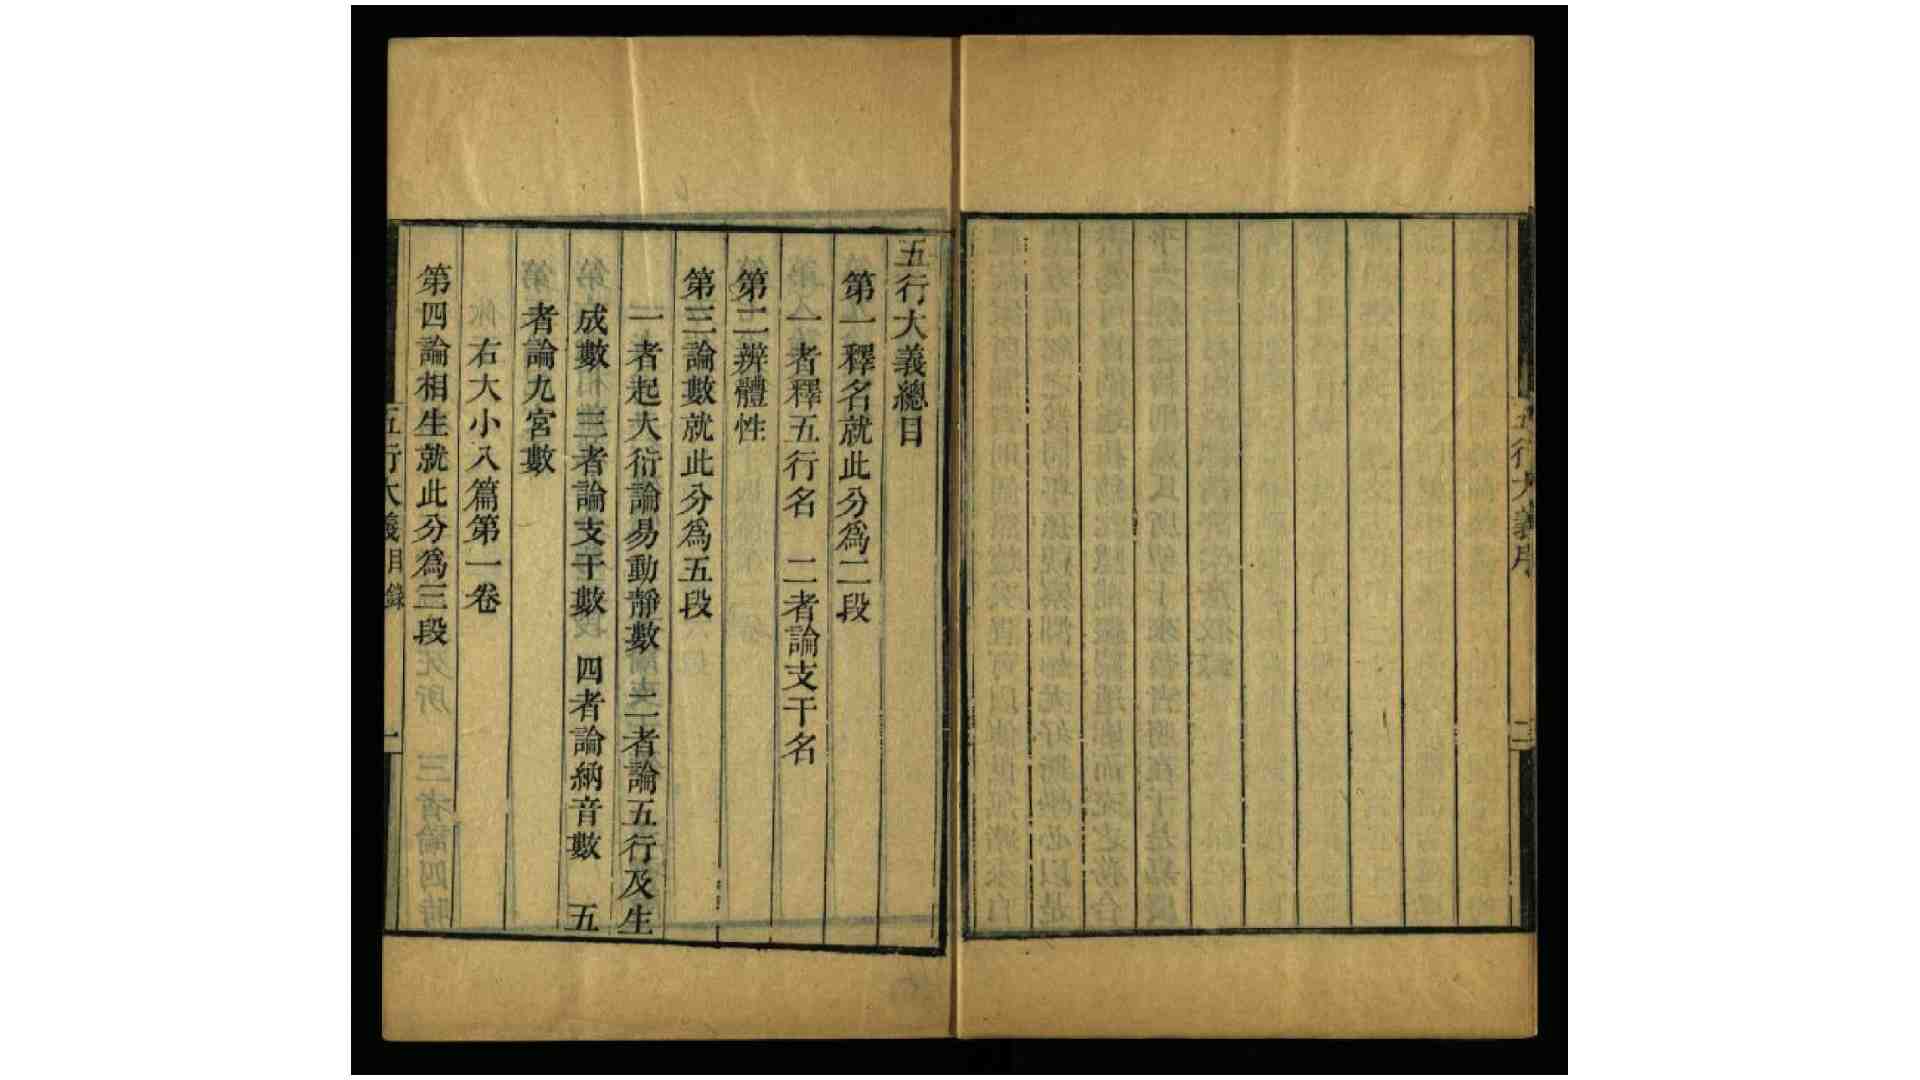 五行大義序
二
五行大義總目
第一釋名就此分爲二段
一者釋五行名　二者論支干名
第二辨體性
第三論數就此分爲五段
一者起大衍論易動靜數　二者論五行及生
成數　三者論支干數　四者論納音數　五
者論九宮數
右大小八篇第一卷
第四論相生就此分爲三段
五行大義目錄
一